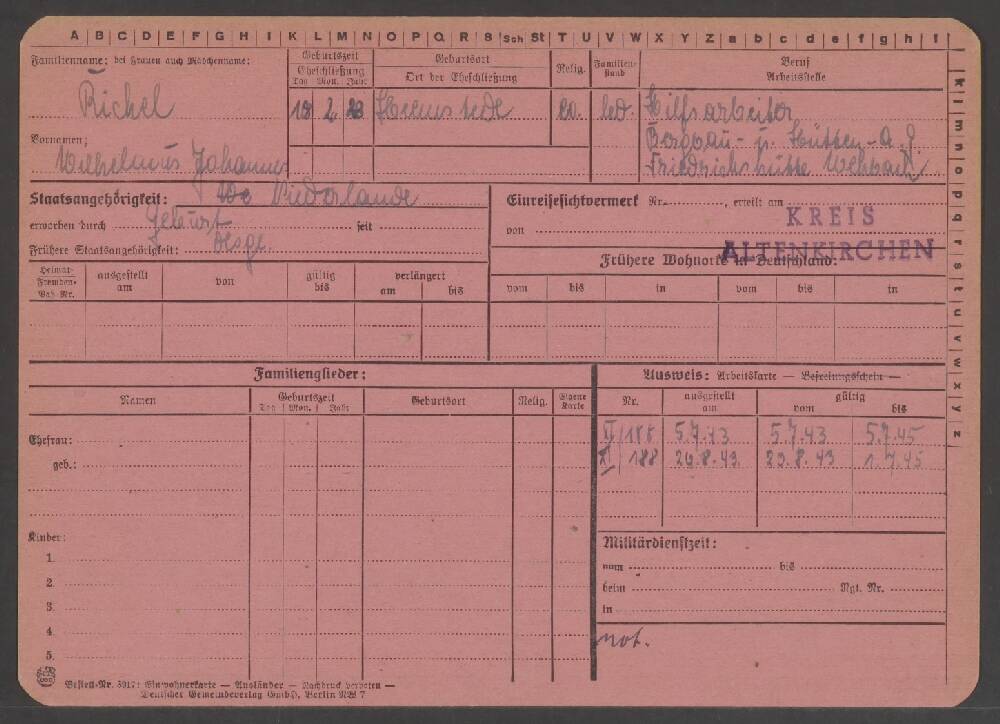 A B C D E F G H I K L M N O P Q R S Sch St T U V W X Y Z a b c d e f g h i
k l m n o p q r s t u v w x y z
Familienname: bei Frauen auch Mädchenname:
Geburtszeit
Eheschließung
Tag Mon. Jahr
Geburtsort
Ort der Eheschließung
Relig.
Familien-
stand
Beruf
Arbeitsstelle
Richel
18 2 23
Heemstede
ev.
led.
Hilfsarbeiter
Bergbau- u. Hütten-A.G.
Friedrichshütte Wehbach
Vornamen:
Wilhelmus Johannes
Staatsangehörigkeit: Niederlande
erworben durch Geburt seit
Frühere Staatsangehörigkeit: desgl.
Einreisesichtvermerk Nr. , erteilt am
von
KREIS
ALTENKIRCHEN
Frühere Wohnorte in Deutschland:
Heimat-
Fremden-
Paß-Nr.
ausgestellt
am
von
gültig
bis
verlängert
am bis
vom bis in vom bis in
Familienglieder:
Namen
Geburtszeit
Tag Mon. Jahr
Geburtsort
Relig.
Eigene
Karte
Ehefrau:
geb.:
Kinder:
1.
2.
3.
4.
5.
Ausweis: Arbeitskarte — Befreiungsschein —
Nr.
ausgestellt
am
gültig
vom bis
VI/188 5.7.43 5.7.43 5.7.45
XI/188 29.8.43 29.8.43 1.7.45
Militärdienstzeit:
vom bis
beim Rgt. Nr.
in
not.
Bestell-Nr. 5017: Einwohnerkarte — Ausländer — Nachdruck verboten —
Deutscher Gemeindeverlag GmbH, Berlin NW 7